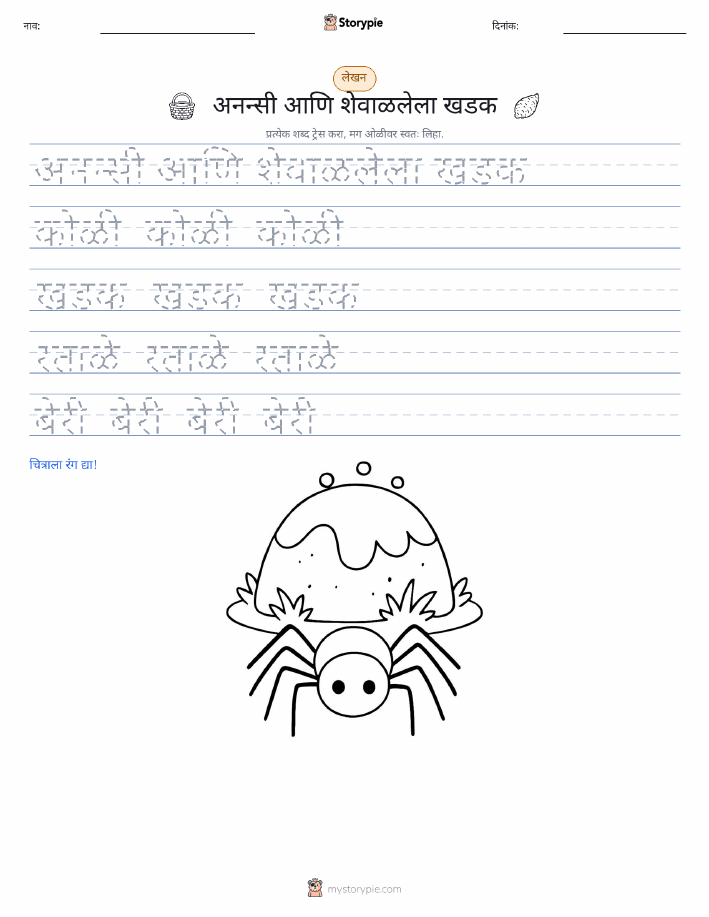 नाव:
Storypie
दिनांक:
लेखन
अनन्सी आणि शेवाळलेला खडक
प्रत्येक शब्द ट्रेस करा, मग ओळीवर स्वतः लिहा.
अनन्सी आणि शेवाळलेला खडक
कोळी कोळी कोळी
खडक खडक खडक
रताळे रताळे रताळे
बेरी बेरी बेरी बेरी
चित्राला रंग द्या!
mystorypie.com